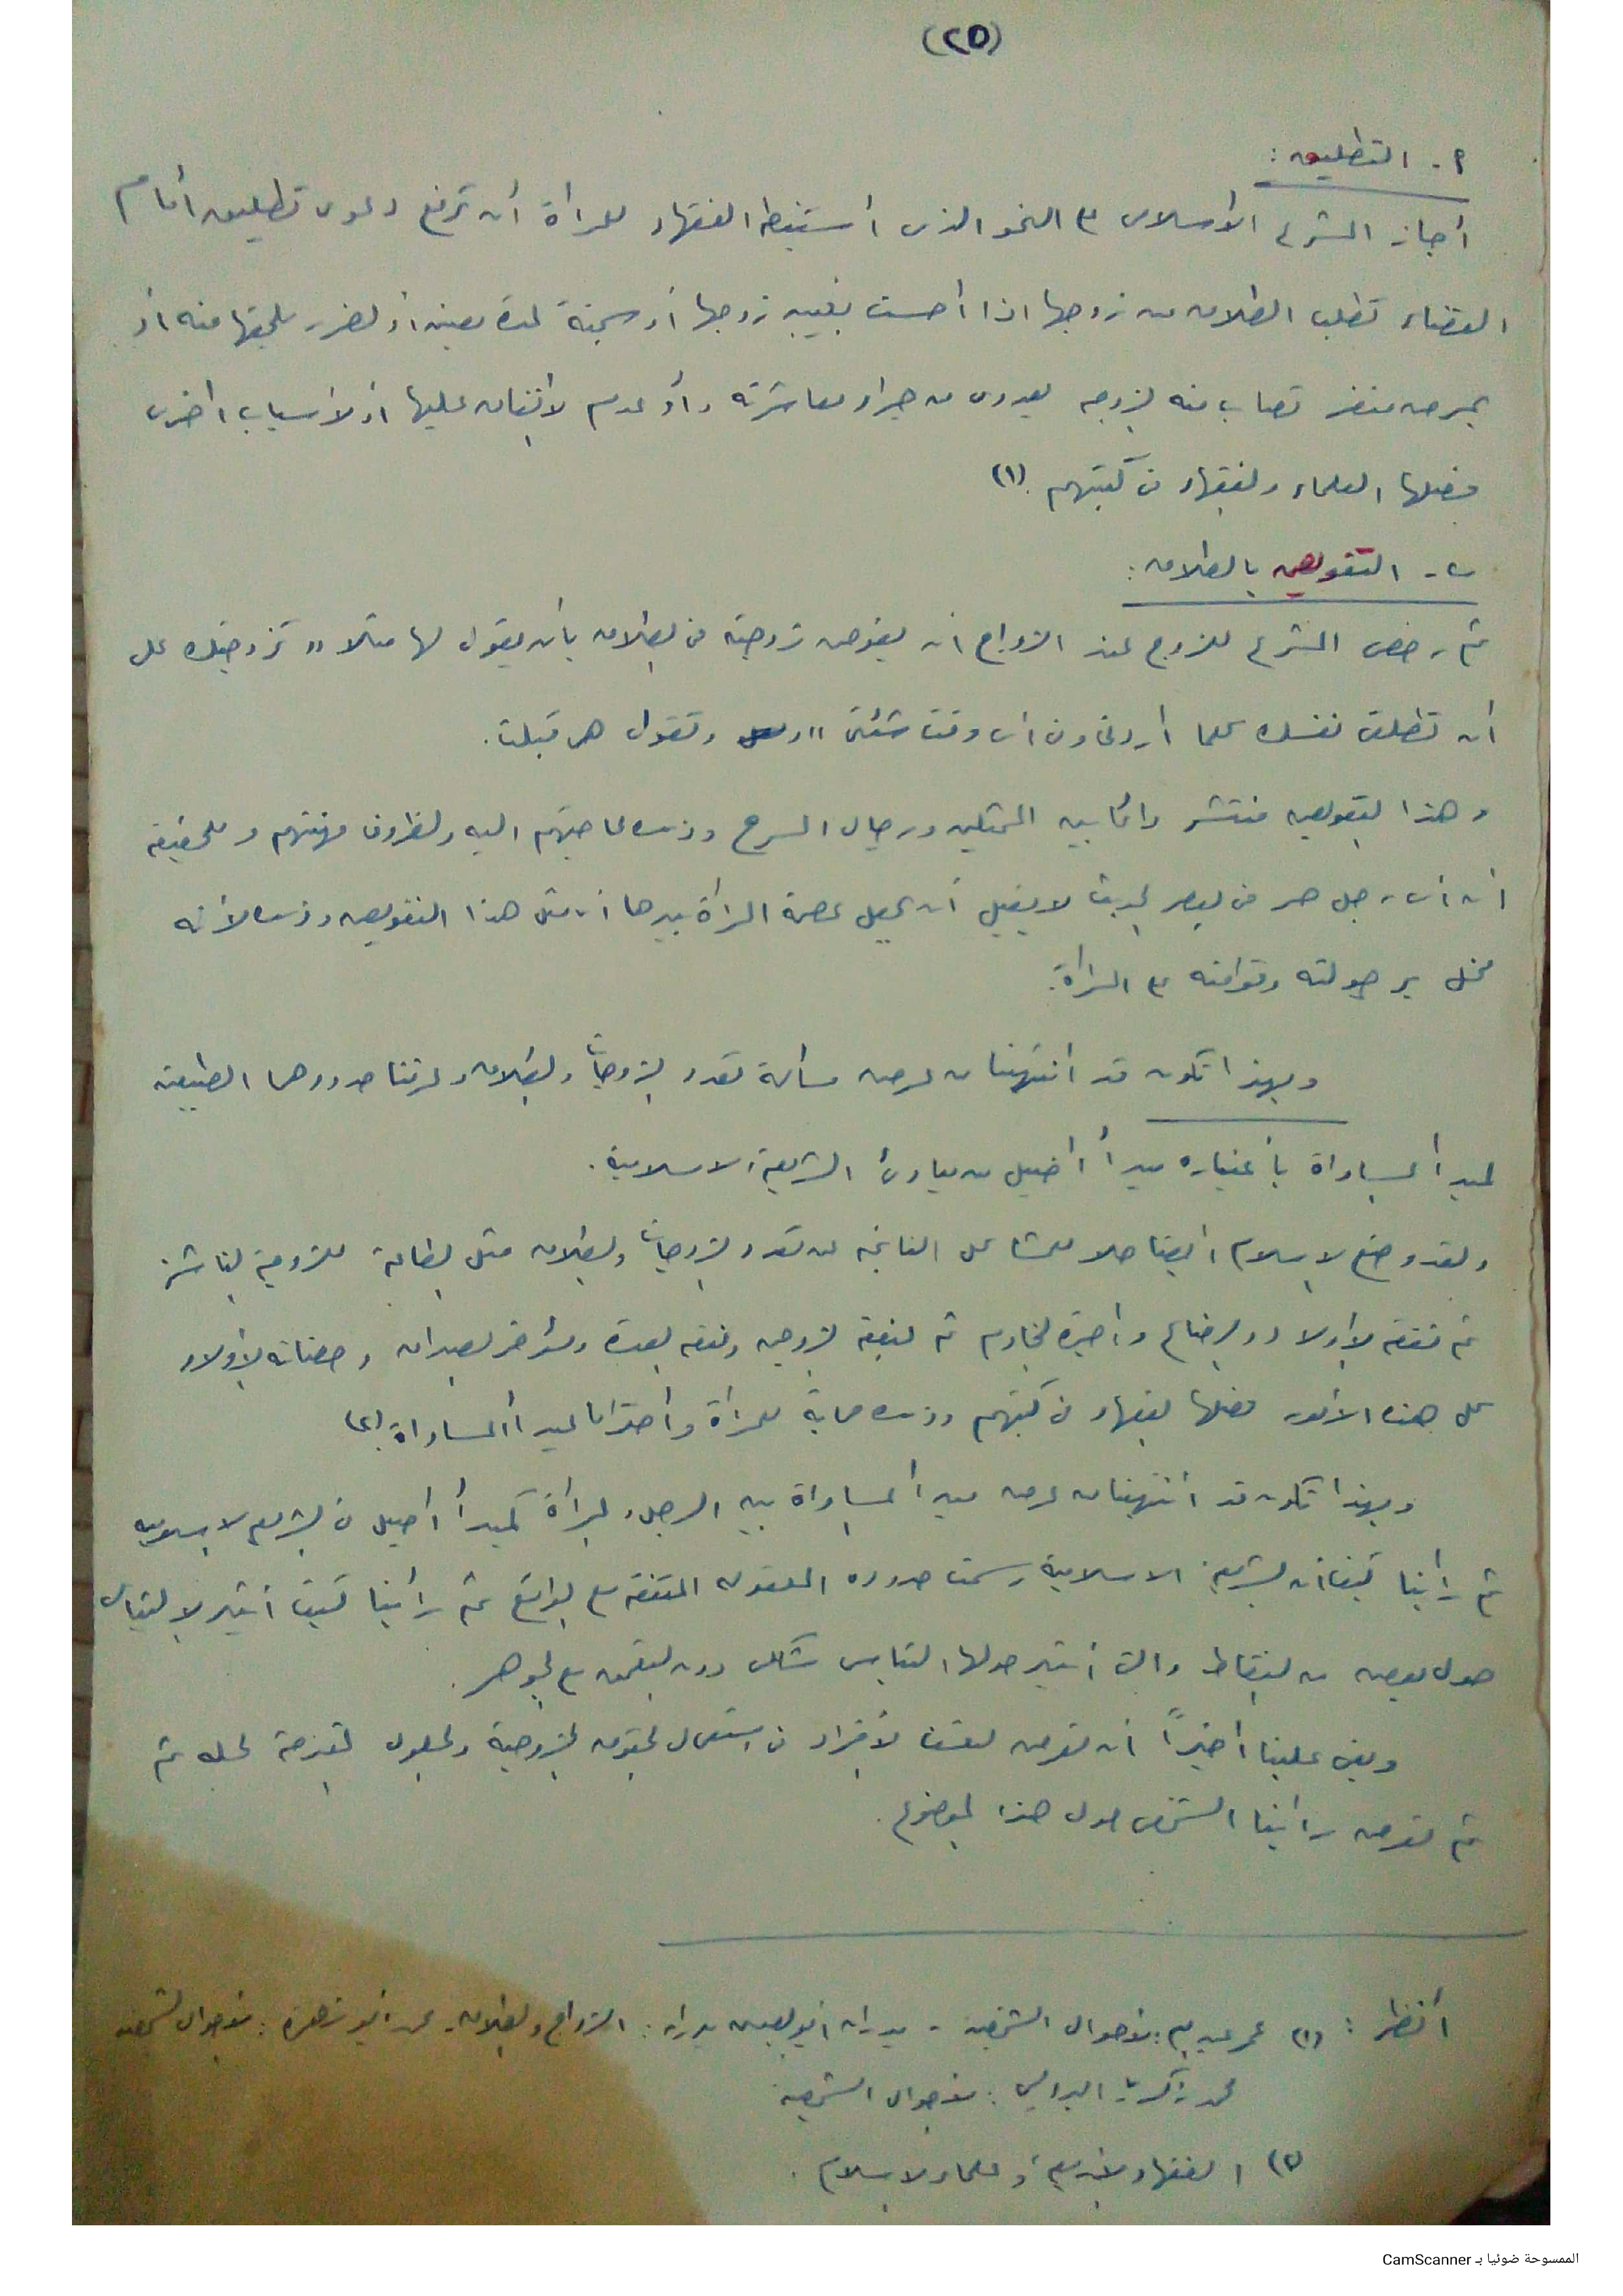 (٢٥)
٢ - التطليق :
أجاز المشرع الإسلامى على النحو الذى أستنبط الفقهاء للمرأة أن ترفع دعوى تطليق أمام
القضاء تطلب الطلاق من زوجها اذا أحست بغيبه زوجها أو سجنه لمدة معينه أو لضرر يلحقها منه أو
بمرض منفر تصاب منه الزوجه يعدوى من جراء معاشرته وأو عدم الانفاق عليها أو لأسباب أخرى
فصلها العلماء والفقهاء فى كتبهم (١)
- التفويض بالطلاق :
ثم رخص المشرع للزوج عند الزواج ان يفوض زوجته فى الطلاق بأن يقول لها مثلا " تزوجتك على
أن تطلق نفسك كلما أردتى وفى أى وقت شئتى " وتقول هى قبلت .
وهذا التفويض منتشر دائما بين الممثلين ورجال المسرح وذلك لحاجتهم اليه ولظروف مهنتهم والحقيقه
أن أى رجل حر فى العصر الحديث لا يقبل أن يجعل عصمة المرأة بيدها أى مثل هذا التفويض وذلك لأنه
مخل برجولته وقوامته على المرأة .
وبهذا نكون قد انتهينا من عرض مسألة تعدد الزوجات والطلاق وعرفنا حدودهما الطبيعيه
لمبدأ المساواة بأعتباره مبدأ أصيل من مبادئ الشريعة الاسلامية .
ولقد وضع الاسلام ايضا حلا للمشاكل الناتجه عن تعدد الزوجات والطلاق مثل الطاعة للزوجة الناشز
ثم نفقه الاولاد والرضاع وأجرة الخادم ثم نفقة الزوجه ونفقه العدة ومؤخر الصداق وحضانه الأولاد
كل هذه الأمور فصلها الفقهاء فى كتبهم وذلك حماية للمرأة واحتراما لمبدأ المساواة (٢)
وبهذا نكون قد أنتهينا من عرض مبدأ المساواة بين الرجل والمرأة كمبدأ أصيل فى التشريع الاسلاميه
ثم رأينا كيف أن الشريعة الاسلامية رسمت حدوده المعقوله المتفقه مع الواقع ثم رأينا كيف أثير الالتباس
حول بعض من النقاط والتى أثير حولها التباس شكلى دون التعمق مع الجوهر .
وبقى علينا أخيراً أن نعرض تعسف الأفراد فى استعمال الحقوق الزوجية والحلول المقترحة لحله ثم
ثم نعرض رأينا الشخصى حول هذا الموضوع .
أنظر : (١) عمر عبد الله : الأحوال الشخصية - بدران أبو العينين بدران : الزواج والطلاق - محمد أبو زهرة : الأحوال الشخصية
محمد زكريا البرديسى : الأحوال الشخصية
(٢) الفقهاء الأربعة وعلماء الاسلام .
الممسوحة ضوئيا بـ CamScanner